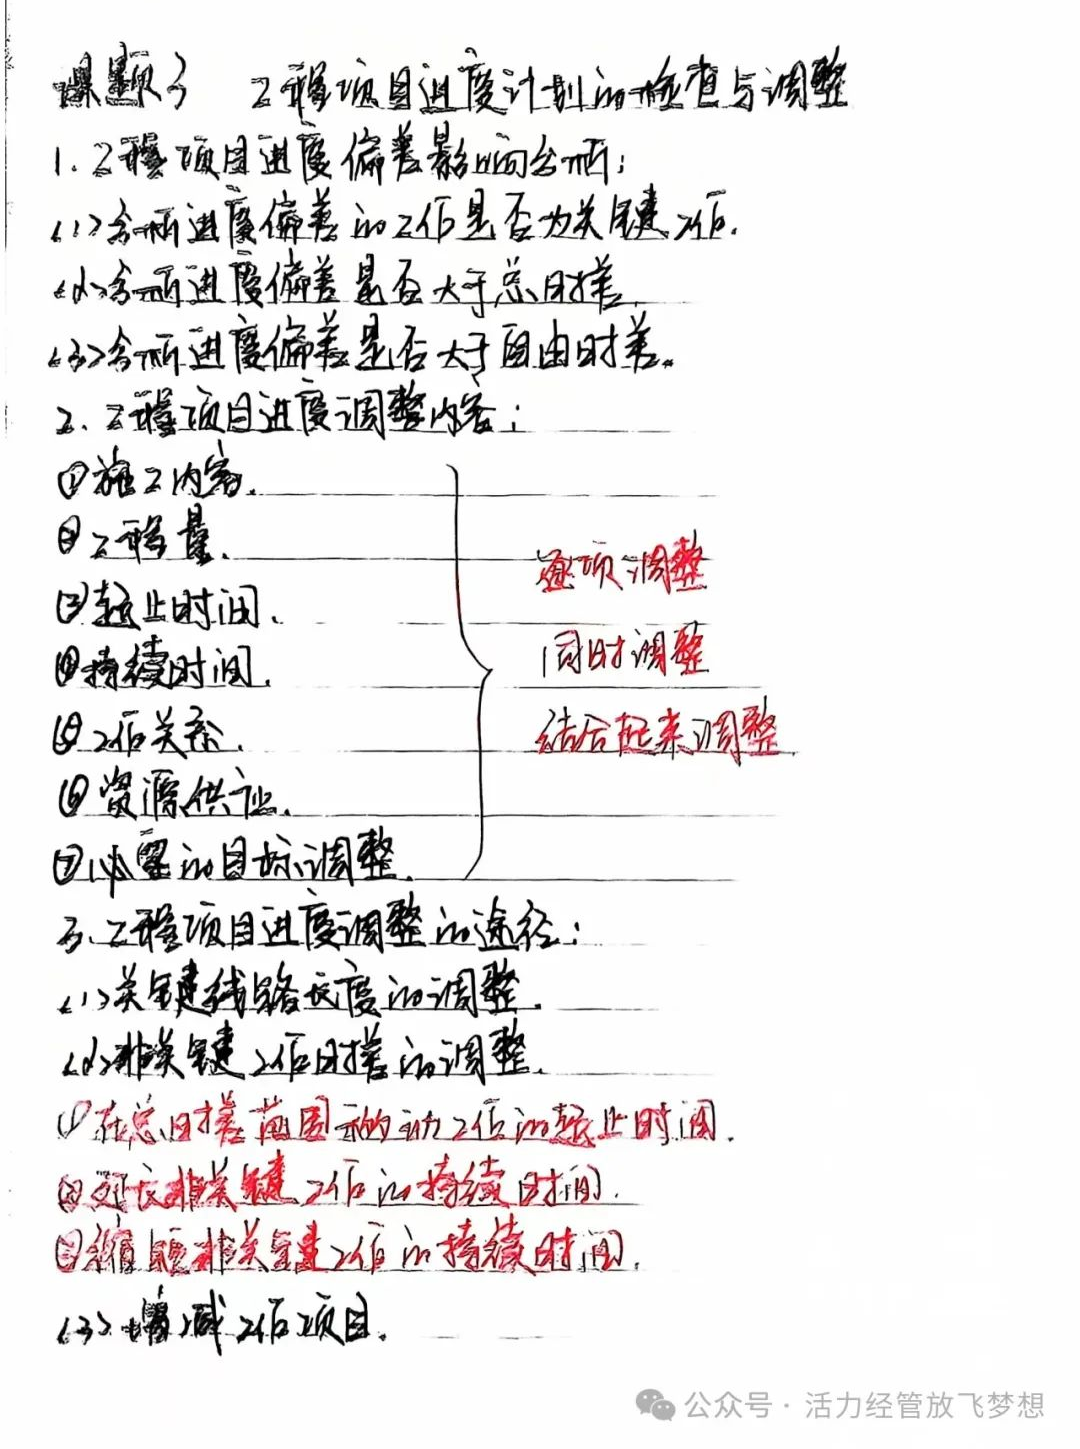 课题3 工程项目进度计划的检查与调整
1. 工程项目进度偏差影响分析：
(1)分析进度偏差的工作是否为关键工作.
(2)分析进度偏差是否大于总时差.
(3)分析进度偏差是否大于自由时差.
2. 工程项目进度调整内容：
①施工内容.
②工程量.
③起止时间.
④持续时间.
⑤工作关系.
⑥资源供应.
⑦必要的目标调整.
逐项调整
同时调整
结合起来调整
3. 工程项目进度调整的途径：
(1)关键线路长度的调整.
(2)非关键工作时差的调整.
①在总时差范围内移动工作的起止时间.
②延长非关键工作的持续时间.
③缩短非关键工作的持续时间.
(3)增减工作项目.
公众号·活力经管放飞梦想